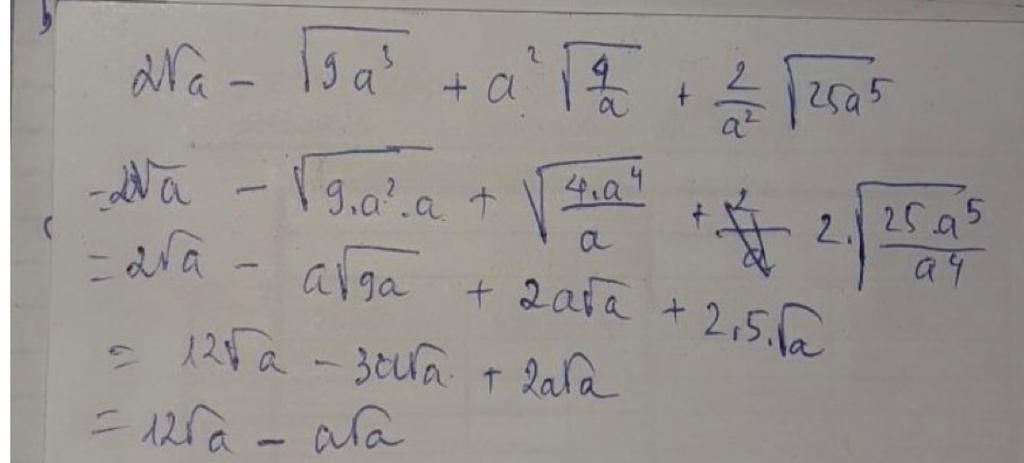 2√a - √(9a³) + a² √(4/a) + 2/a² √(25a⁵)
= 2√a - √(9.a².a) + √(4.a⁴/a) + 2.√(25.a⁵/a⁴)
= 2√a - a√(9a) + 2a√a + 2.5.√a
= 12√a - 3a√a + 2a√a
= 12√a - a√a